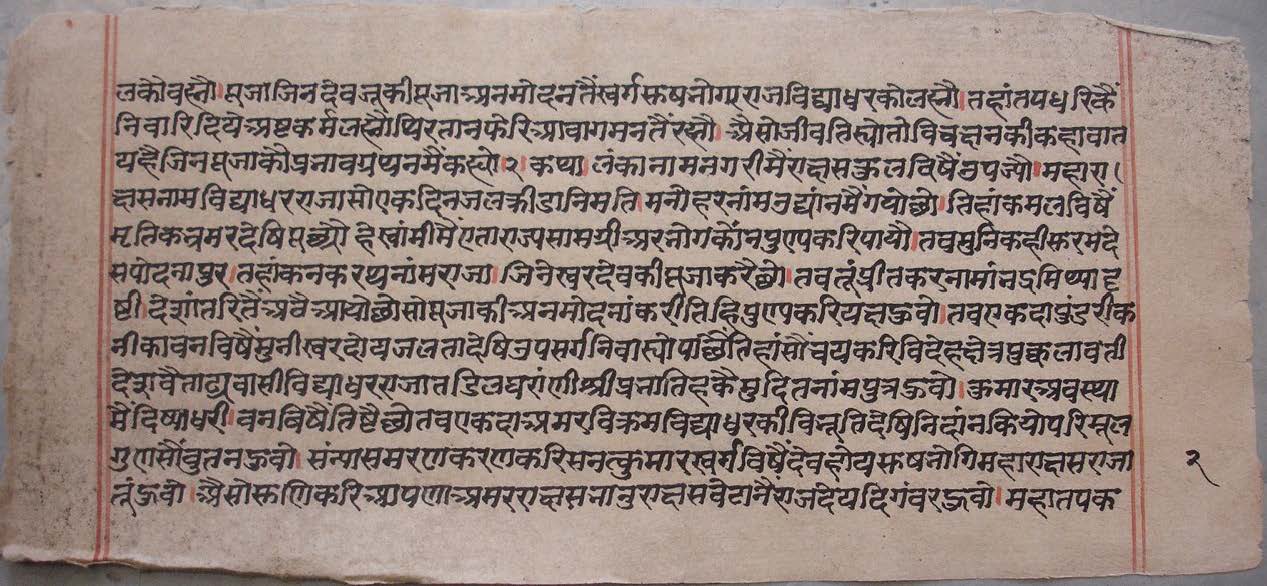 लकौ वहनौ। पूजा जिनदेवजू की पूजा अनमोदन तैं स्वर्ग सुष भोग्य राज विद्याधर कौ लह्नौ। तहां तप धरिकैं
निवारि दिये अष्टकर्म लह्नौ थिर तान फेरि आवागमन तैं रह्नौ। अैसो जीव तिर्यो तो विवहान की कहा वात
यहै जिन पूजा कौ प्रभाव ग्रथन मैं कह्यो २। कथा। लंका नाम नगरी मैं राक्षस कुल विषैं उपज्यौ। महारा
क्षस नाम विद्याधर राजा सो एक दिन जलक्रीडा निमति। मनोहर नांम उद्यांन मैं गयो छो। तिहां कमल विषैं
मृतिक भ्रमर देषि पूछ्यौ हे स्वांमी मैं एता राज्य सामग्री अर भोग कौंन पुण्य करि पायौ। तव मुनि कही सुरम दे
स पोदनापुर। तहां कनकरथ नांम राजा। जिनेस्वर देव की पूजा करै छो। तव तूं प्रीतकर नामां भद्र मिथ्या दृ
ष्टी देशांतरि तैं अवै आयो छो सो पूजा की अनमोदनां करी तिहि पुण्य करि यक्ष हुवो। तव एकदा पुंडरीक
नी का वन विषैं मुनीस्वर दोय जलता देषि उपसर्ग निवार्यो पाछैं तिहां सौं चय करि विदेह क्षेत्र पुष्कलावती
देश वैताढ्य वासी विद्याधर राजा तडिलघ रांणी श्रीप्रभा तिहकै मुदित नांम पुत्र हुवो। कुमार अवस्था
मैं दिष्या धरी। वन विषै तिष्टै छो तव एकदा अमरविक्रम विद्याधर की विभूति देषि निदांन कियो परि मूल
गुण सौं वुत न हुवो। संन्यास मरण करण करि सनत्कुमार स्वर्ग विषैं देव होय सुष भोगि महाराक्षस राजा
तूं हुवो। अैसो सुणि करि आपणा अमरराक्षस भानुराक्षस वेटा नैं राज देय दिगंवर हुवो। महा तप क
२